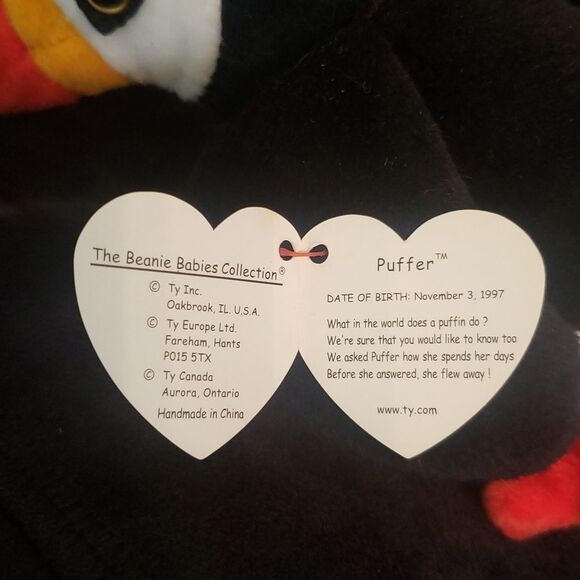 The Beanie Babies Collection®
© Ty Inc.
Oakbrook, IL. U.S.A.
© Ty Europe Ltd.
Fareham, Hants
P015 5TX
© Ty Canada
Aurora, Ontario
Handmade in China
Puffer™
DATE OF BIRTH: November 3, 1997
What in the world does a puffin do ?
We're sure that you would like to know too
We asked Puffer how she spends her days
Before she answered, she flew away !
www.ty.com